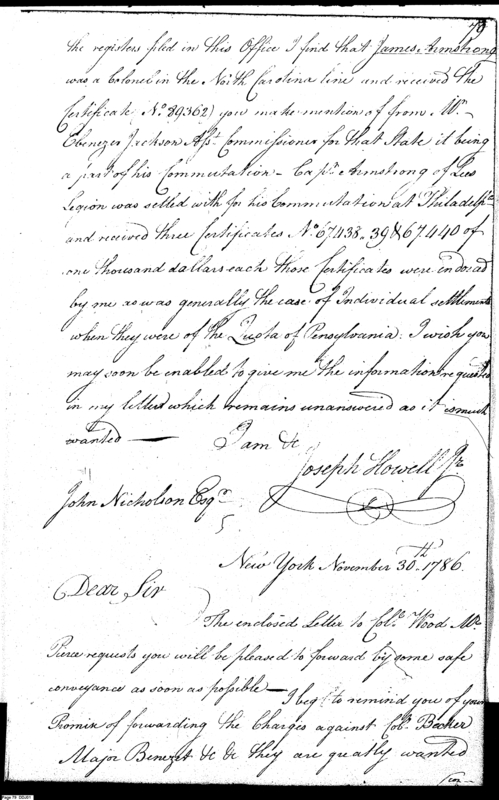 79
the registers filed in this Office I find that James Armstrong
was a Colonel in the North Carolina line and received the
Certificate (No 89362) you make mention of from Mr
Ebenezer Jackson Asst Commissioner for that State it being
a part of his Commutation – Capn Armstrong of Lees
Legion was settled with for his Commutation at Philadelpa
and received three Certificates No 67438. 39 & 67.440 of
one thousand dollars each those Certificates were endorsed
by me as was generally the case of Individual settlements
when they were of the Quota of Pensylvania. I wish you
may soon be enabled to give me the information requested
in my letter which remains unanswered as it is much
wanted — I am &c
Joseph Howell Jr
John Nicholson Esqr
New York November 30th 1786.
Dear Sir
The enclosed Letter to Colo Wood Mr
Pierce requests you will be pleased to forward by some safe
conveyance as soon as possible — I beg to remind you of your
Promise of forwarding the Charges against Colo Becker
Major Benezet &c &c they are greatly wanted
Page 79 DDJ01